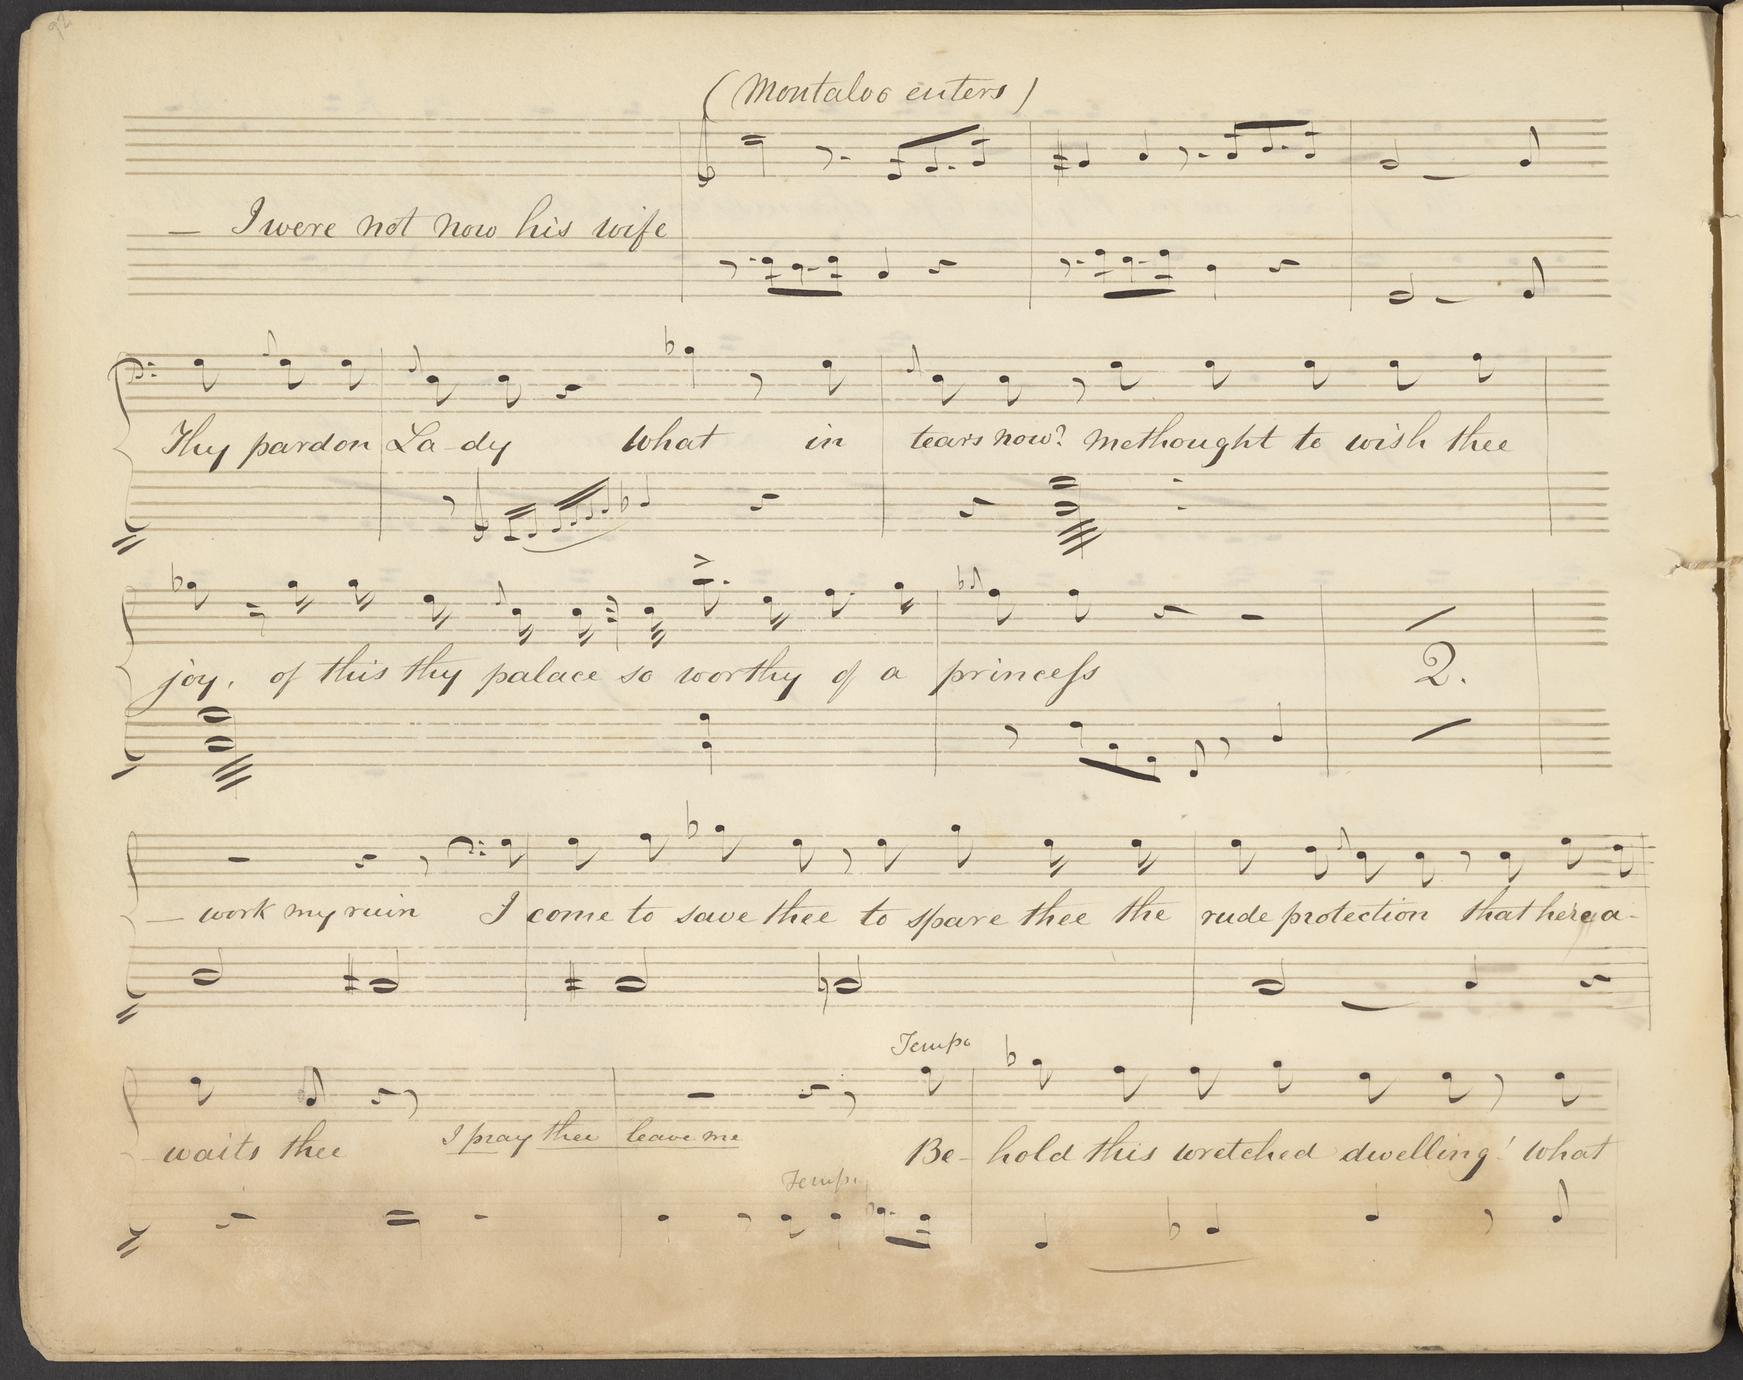 92
(Montalvo enters)
— I were not now his wife
Thy pardon La-dy what in tears now? methought to wish thee
joy, of this thy palace so worthy of a princess
2.
— work my ruin I come to save thee to spare thee the rude protection that here a-
Tempo
waits thee I pray thee leave me Be- hold this wretched dwelling! what
Tempo